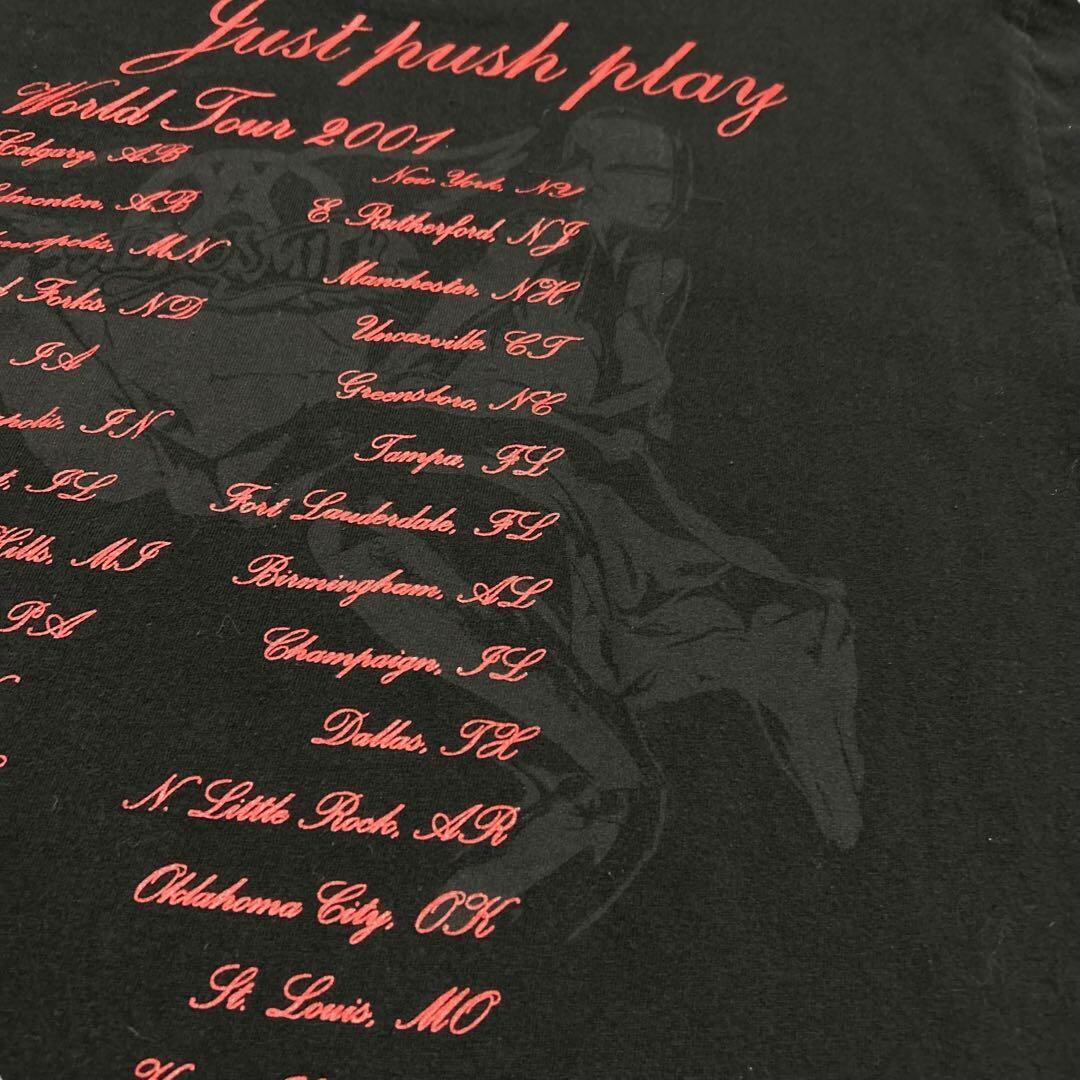 Just push play
World Tour 2001
Calgary, AB
AB
MN
Forks, ND
IA
IN
IL
Hills, MI
PA
New York, NY
E. Rutherford, NJ
Manchester, NH
Uncasville, CT
Greensboro, NC
Tampa, FL
Fort Lauderdale, FL
Birmingham, AL
Champaign, IL
Dallas, TX
N. Little Rock, AR
Oklahoma City, OK
St. Louis, MO